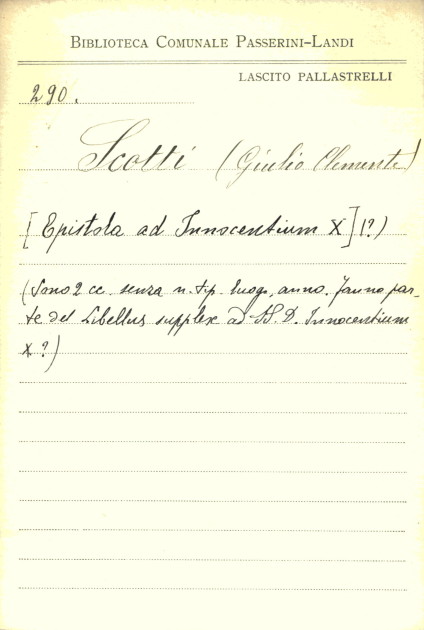 BIBLIOTECA COMUNALE PASSERINI-LANDI
LASCITO PALLASTRELLI
290.
Scotti (Giulio Clemente)
[Epistola ad Innocentium X] (?)
(Sono 2 cc. senza n. tip. luogo, anno. Fanno par-
te del Libellus supplex ad SS. D. Innocentium
X ?)